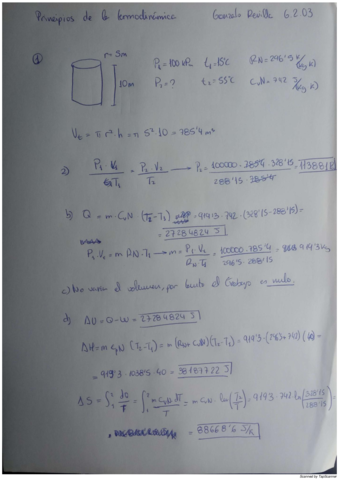 Principios de la termodinámica Gonzalo Revilla 6.2.03
① r = 5m P₁=100 kPa t₁=15ºC RN=296'5 J/(Kg·K)
10m P₂=? t₂=55ºC CvN=742 J/(Kg·K)
V₀ = π r² · h = π 5² · 10 = 785'4 m³
a) P₁·V₁/T₁ = P₂·V₂/T₂ → P₂ = 100000 · 785'4 · 328'15 / 288'15 · 785'4 = 113881
b) Q = m·CvN (T₂-T₁) = 9193 · 742 · (328'15 - 288'15) =
= 27284824 J
P₁·V₁ = m RN·T₁ → m = P₁·V₁/RN·T₁ = 100000·785'4/296'5·288'15 = 919'3 Kg
c) No varía el volumen, por tanto el trabajo es nulo.
d) ΔU = Q-W = 27284824 J
ΔH = m CpN (T₂-T₁) = m(RN + CvN)(T₂-T₁) = 919'3 · (296'5+742)
= 919'3 · 1038'5 · 40 = 38187722 J
ΔS = ∫₁² dQ/T = ∫₁² m CvN dT/T = m CvN · ln(T₂/T₁) = 919'3 · 742 ln(328'15/288'15)
= 88668'6 J/K
Scanned by TapScanner